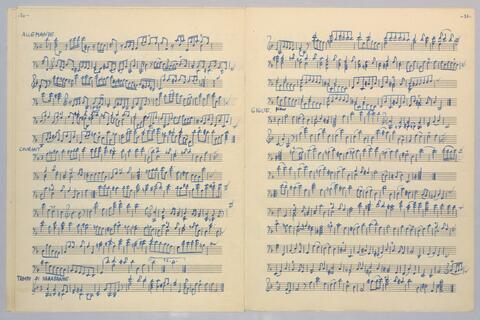 ALLEMANDE
COURANT
TEMPO DI SARABANDE
GIGUE